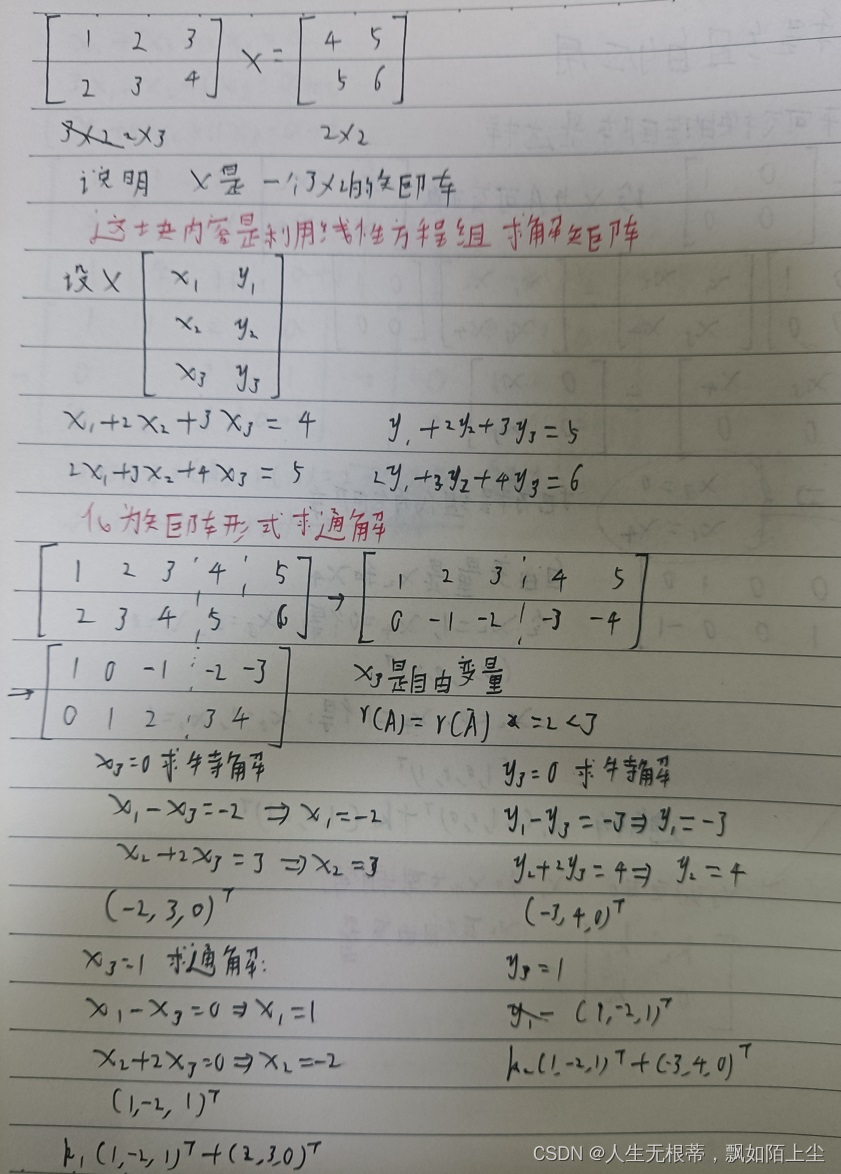 [1 2 3; 2 3 4] X = [4 5; 5 6]
3×2 2×3 2×2
说明 X是一个3×2的矩阵
这块内容是利用线性方程组 求解矩阵
设X [x₁ y₁; x₂ y₂; x₃ y₃]
x₁+2x₂+3x₃=4 y₁+2y₂+3y₃=5
2x₁+3x₂+4x₃=5 2y₁+3y₂+4y₃=6
化为矩阵形式求通解
[1 2 3 ¦ 4 ¦ 5; 2 3 4 ¦ 5 ¦ 6] → [1 2 3 ¦ 4 5; 0 -1 -2 ¦ -3 -4]
→ [1 0 -1 ¦ -2 -3; 0 1 2 ¦ 3 4] x₃是自由变量
r(A)=r(Ā)=2<3
x₃=0 求特解 y₃=0 求特解
x₁-x₃=-2 ⇒ x₁=-2 y₁-y₃=-3 ⇒ y₁=-3
x₂+2x₃=3 ⇒ x₂=3 y₂+2y₃=4 ⇒ y₂=4
(-2,3,0)ᵀ (-3,4,0)ᵀ
x₃=1 求通解: y₃=1
x₁-x₃=0 ⇒ x₁=1 y₁- (1,-2,1)ᵀ
x₂+2x₃=0 ⇒ x₂=-2 k₂(1,-2,1)ᵀ+(-3,4,0)ᵀ
(1,-2,1)ᵀ
k₁(1,-2,1)ᵀ+(2,3,0)ᵀ
CSDN @人生无根蒂，飘如陌上尘